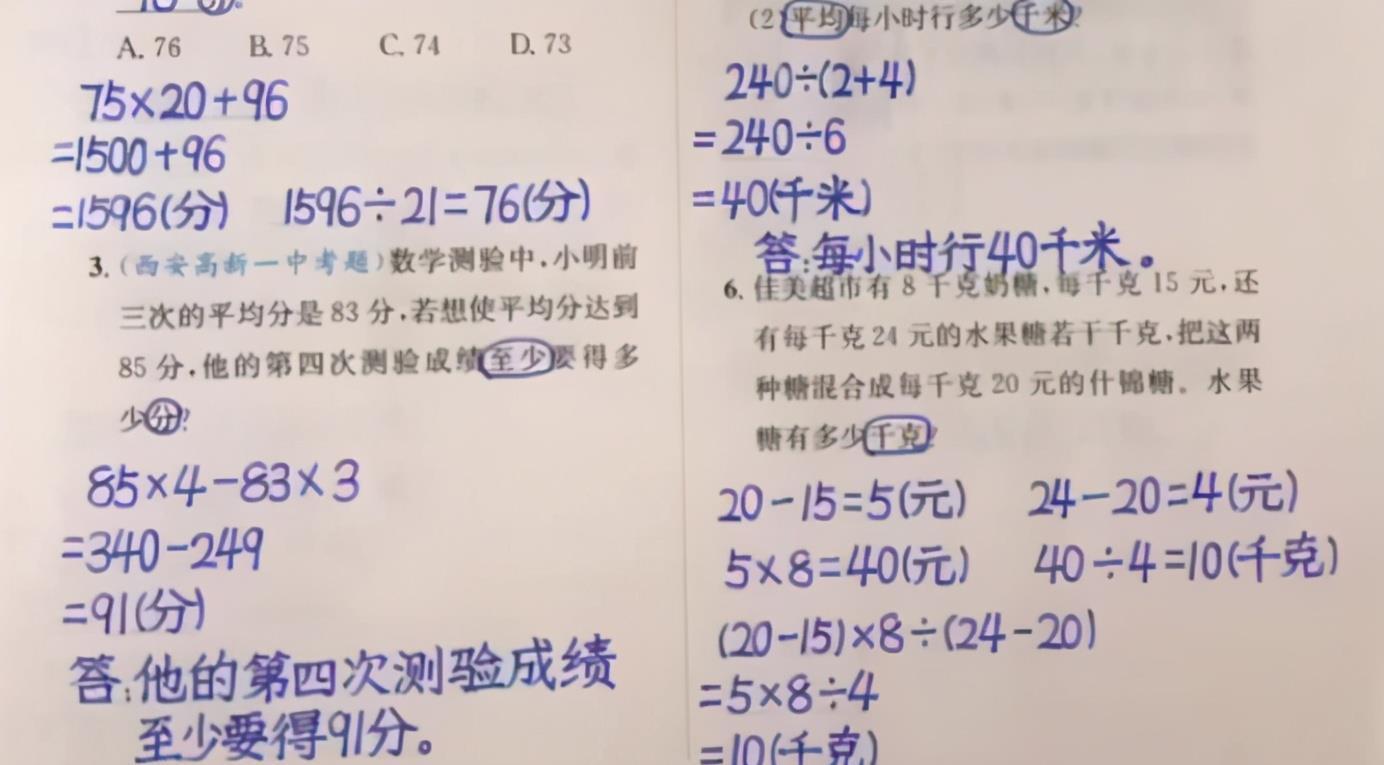 A. 76 B. 75 C. 74 D. 73
75×20+96
=1500+96
=1596(分) 1596÷21=76(分)
3.(西安高新一中考题)数学测验中,小明前
三次的平均分是83分,若想使平均分达到
85分,他的第四次测验成绩至少要得多
少分?
85×4-83×3
=340-249
=91(分)
答:他的第四次测验成绩
至少要得91分。
(2)平均每小时行多少千米?
240÷(2+4)
=240÷6
=40(千米)
答:每小时行40千米。
6. 佳美超市有8千克奶糖,每千克15元,还
有每千克24元的水果糖若干千克,把这两
种糖混合成每千克20元的什锦糖。水果
糖有多少千克?
20-15=5(元) 24-20=4(元)
5×8=40(元) 40÷4=10(千克)
(20-15)×8÷(24-20)
=5×8÷4
=10(千克)